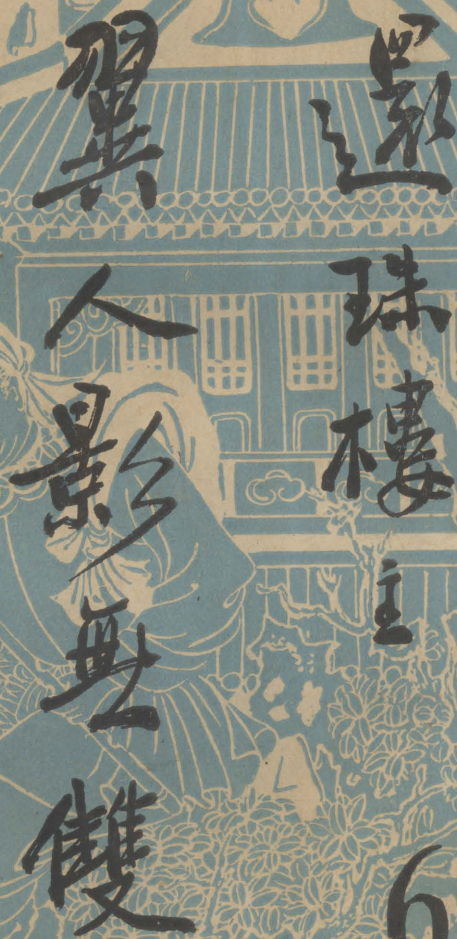 還珠樓主
翼人影無雙
6